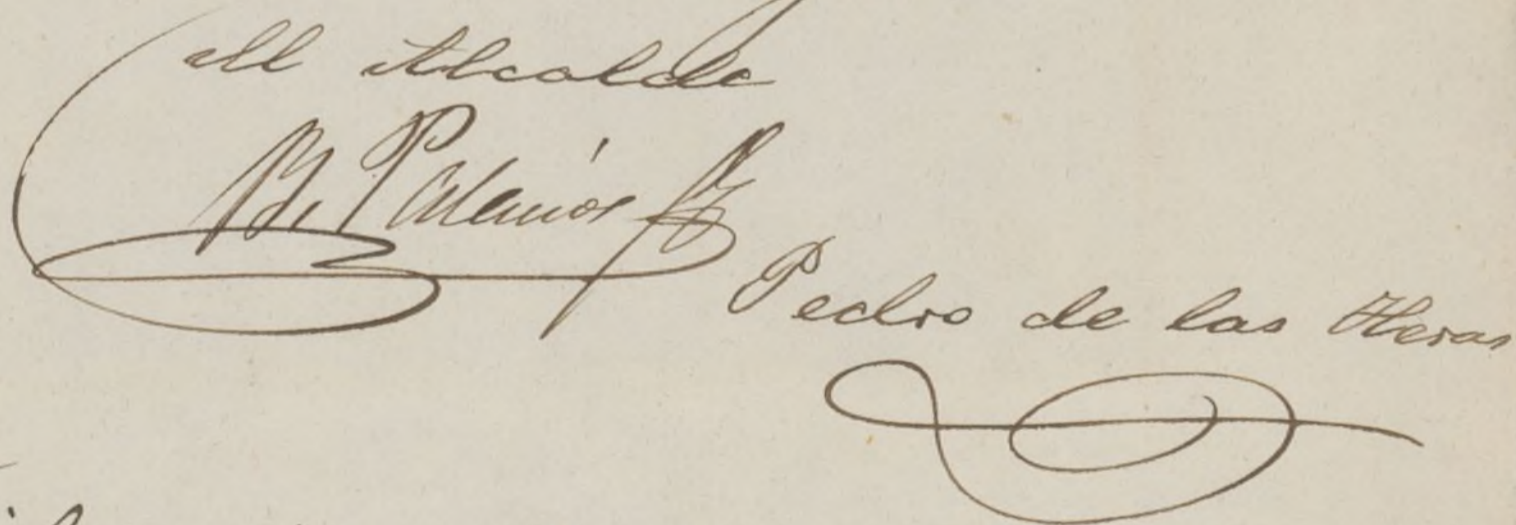 El Alcalde
B. Palacios
Pedro de las Heras